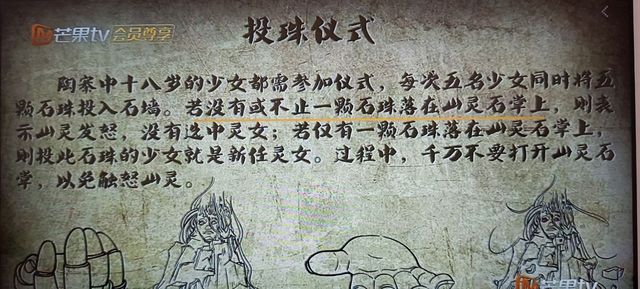 芒果tv 会员尊享
投珠仪式
陶寨中十八岁的少女都需参加仪式，每次五名少女同时将五
颗石珠投入石墙。若没有或不止一颗石珠落在山灵石掌上，则表
示山灵发怒，没有选中灵女；若仅有一颗石珠落在山灵石掌上，
则投此石珠的少女就是新任灵女。过程中，千万不要打开山灵石
掌，以免触怒山灵。
芒果tv